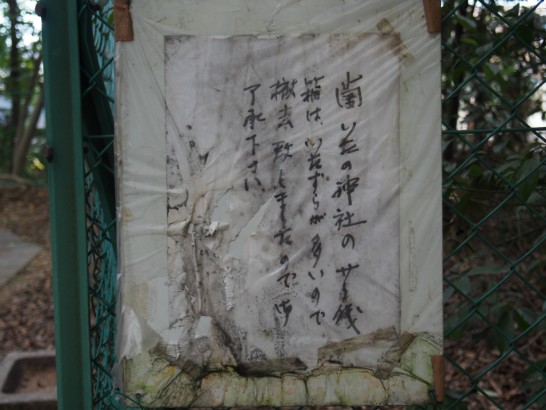 歯いたの神社のサイ銭
箱は、いたずらが多いので
撤去致しましたので御
了承下さい